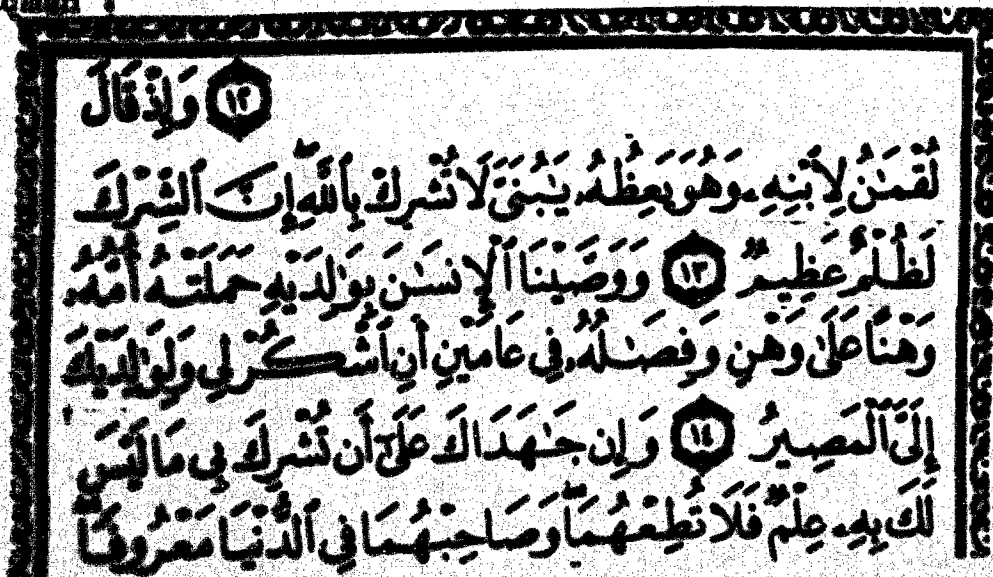 ﴿١٢﴾ وَإِذْ قَالَ
لُقْمَـٰنُ لِٱبْنِهِۦ وَهُوَ يَعِظُهُۥ يَـٰبُنَىَّ لَا تُشْرِكْ بِٱللَّهِ إِنَّ ٱلشِّرْكَ
لَظُلْمٌ عَظِيمٌ ﴿١٣﴾ وَوَصَّيْنَا ٱلْإِنسَـٰنَ بِوَٰلِدَيْهِ حَمَلَتْهُ أُمُّهُۥ
وَهْنًا عَلَىٰ وَهْنٍ وَفِصَـٰلُهُۥ فِى عَامَيْنِ أَنِ ٱشْكُرْ لِى وَلِوَٰلِدَيْكَ
إِلَىَّ ٱلْمَصِيرُ ﴿١٤﴾ وَإِن جَـٰهَدَاكَ عَلَىٰٓ أَن تُشْرِكَ بِى مَا لَيْسَ
لَكَ بِهِۦ عِلْمٌ فَلَا تُطِعْهُمَا وَصَاحِبْهُمَا فِى ٱلدُّنْيَا مَعْرُوفًا